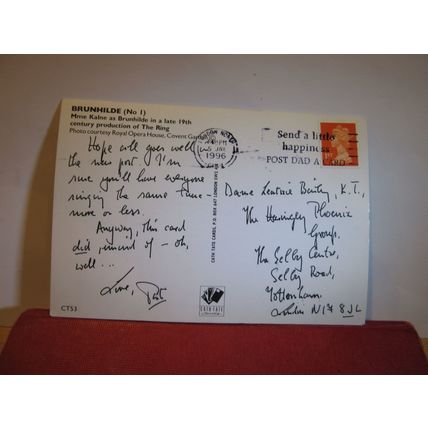 BRUNHILDE (No 1)
Mme Kalne as Brunhilde in a late 19th
century production of The Ring
Photo courtesy Royal Opera House, Covent Garden
Hope all goes well in
the new post. I'm
sure you'll have everyone
singing the same tune –
more or less.
Anyway, this card
did remind of – oh,
well...
Love,
CT53
CATH TATE CARDS, P.O. BOX 647 LONDON SW2
CATH TATE
1996
Send a little
happiness
POST DAD A CARD
1st
Dame Beatrice Bailey, K.T.,
The Haringey Phoenix
Group,
The Selby Centre,
Selby Road,
Tottenham,
London N17 8JL